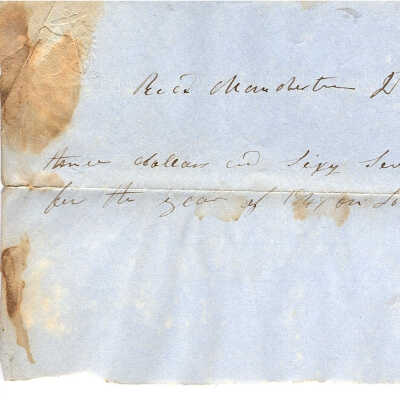 Rec'd Manchester
three dollars and Sixy Sev
for the year of 1847 on